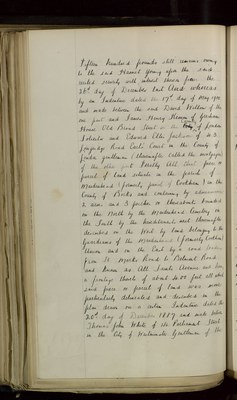 Fifteen hundred pounds still remains owing
to the said Harriet Young upon the said
recited security with interest thereon from the
28th day of December last And whereas
by an Indenture dated the 17th day of May 1900
and made between the said David William of the
one part and James Henry of Gresham
House Old Broad Street in the City of London
Solicitor and Edward Ellis of 43
Longridge Road Earls Court in the County of
London gentleman (thereinafter called the mortgagees)
of the other part Firstly All that piece or
parcel of land situate in the parish of
Maidenhead (formerly parish of Cookham) in the
County of Berks and containing by admeasurement
2 acres and 3 perches or thereabouts bounded
on the North by the Maidenhead Cemetery on
the South by the hereditaments next thereinafter
described on the West by land belonging to the
Guardians of the Maidenhead (formerly Cookham)
Union and on the East by a road leading
from St Marks Road to Belmont Road
and known as All Saints Avenue and
a frontage thereto of about feet all which
said piece or parcel of land was more
particularly delineated and described in the
plan drawn on a certain Indenture dated the
20th day of December 1887 and made between
Thomas John White of 30 Parliament Street
in the City of Westminster Gentleman of the